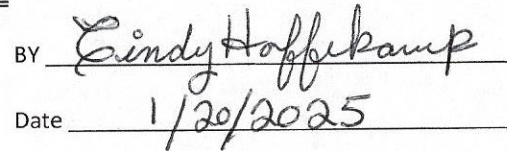 BY Cindy Hoffekamp
Date 1/20/2025